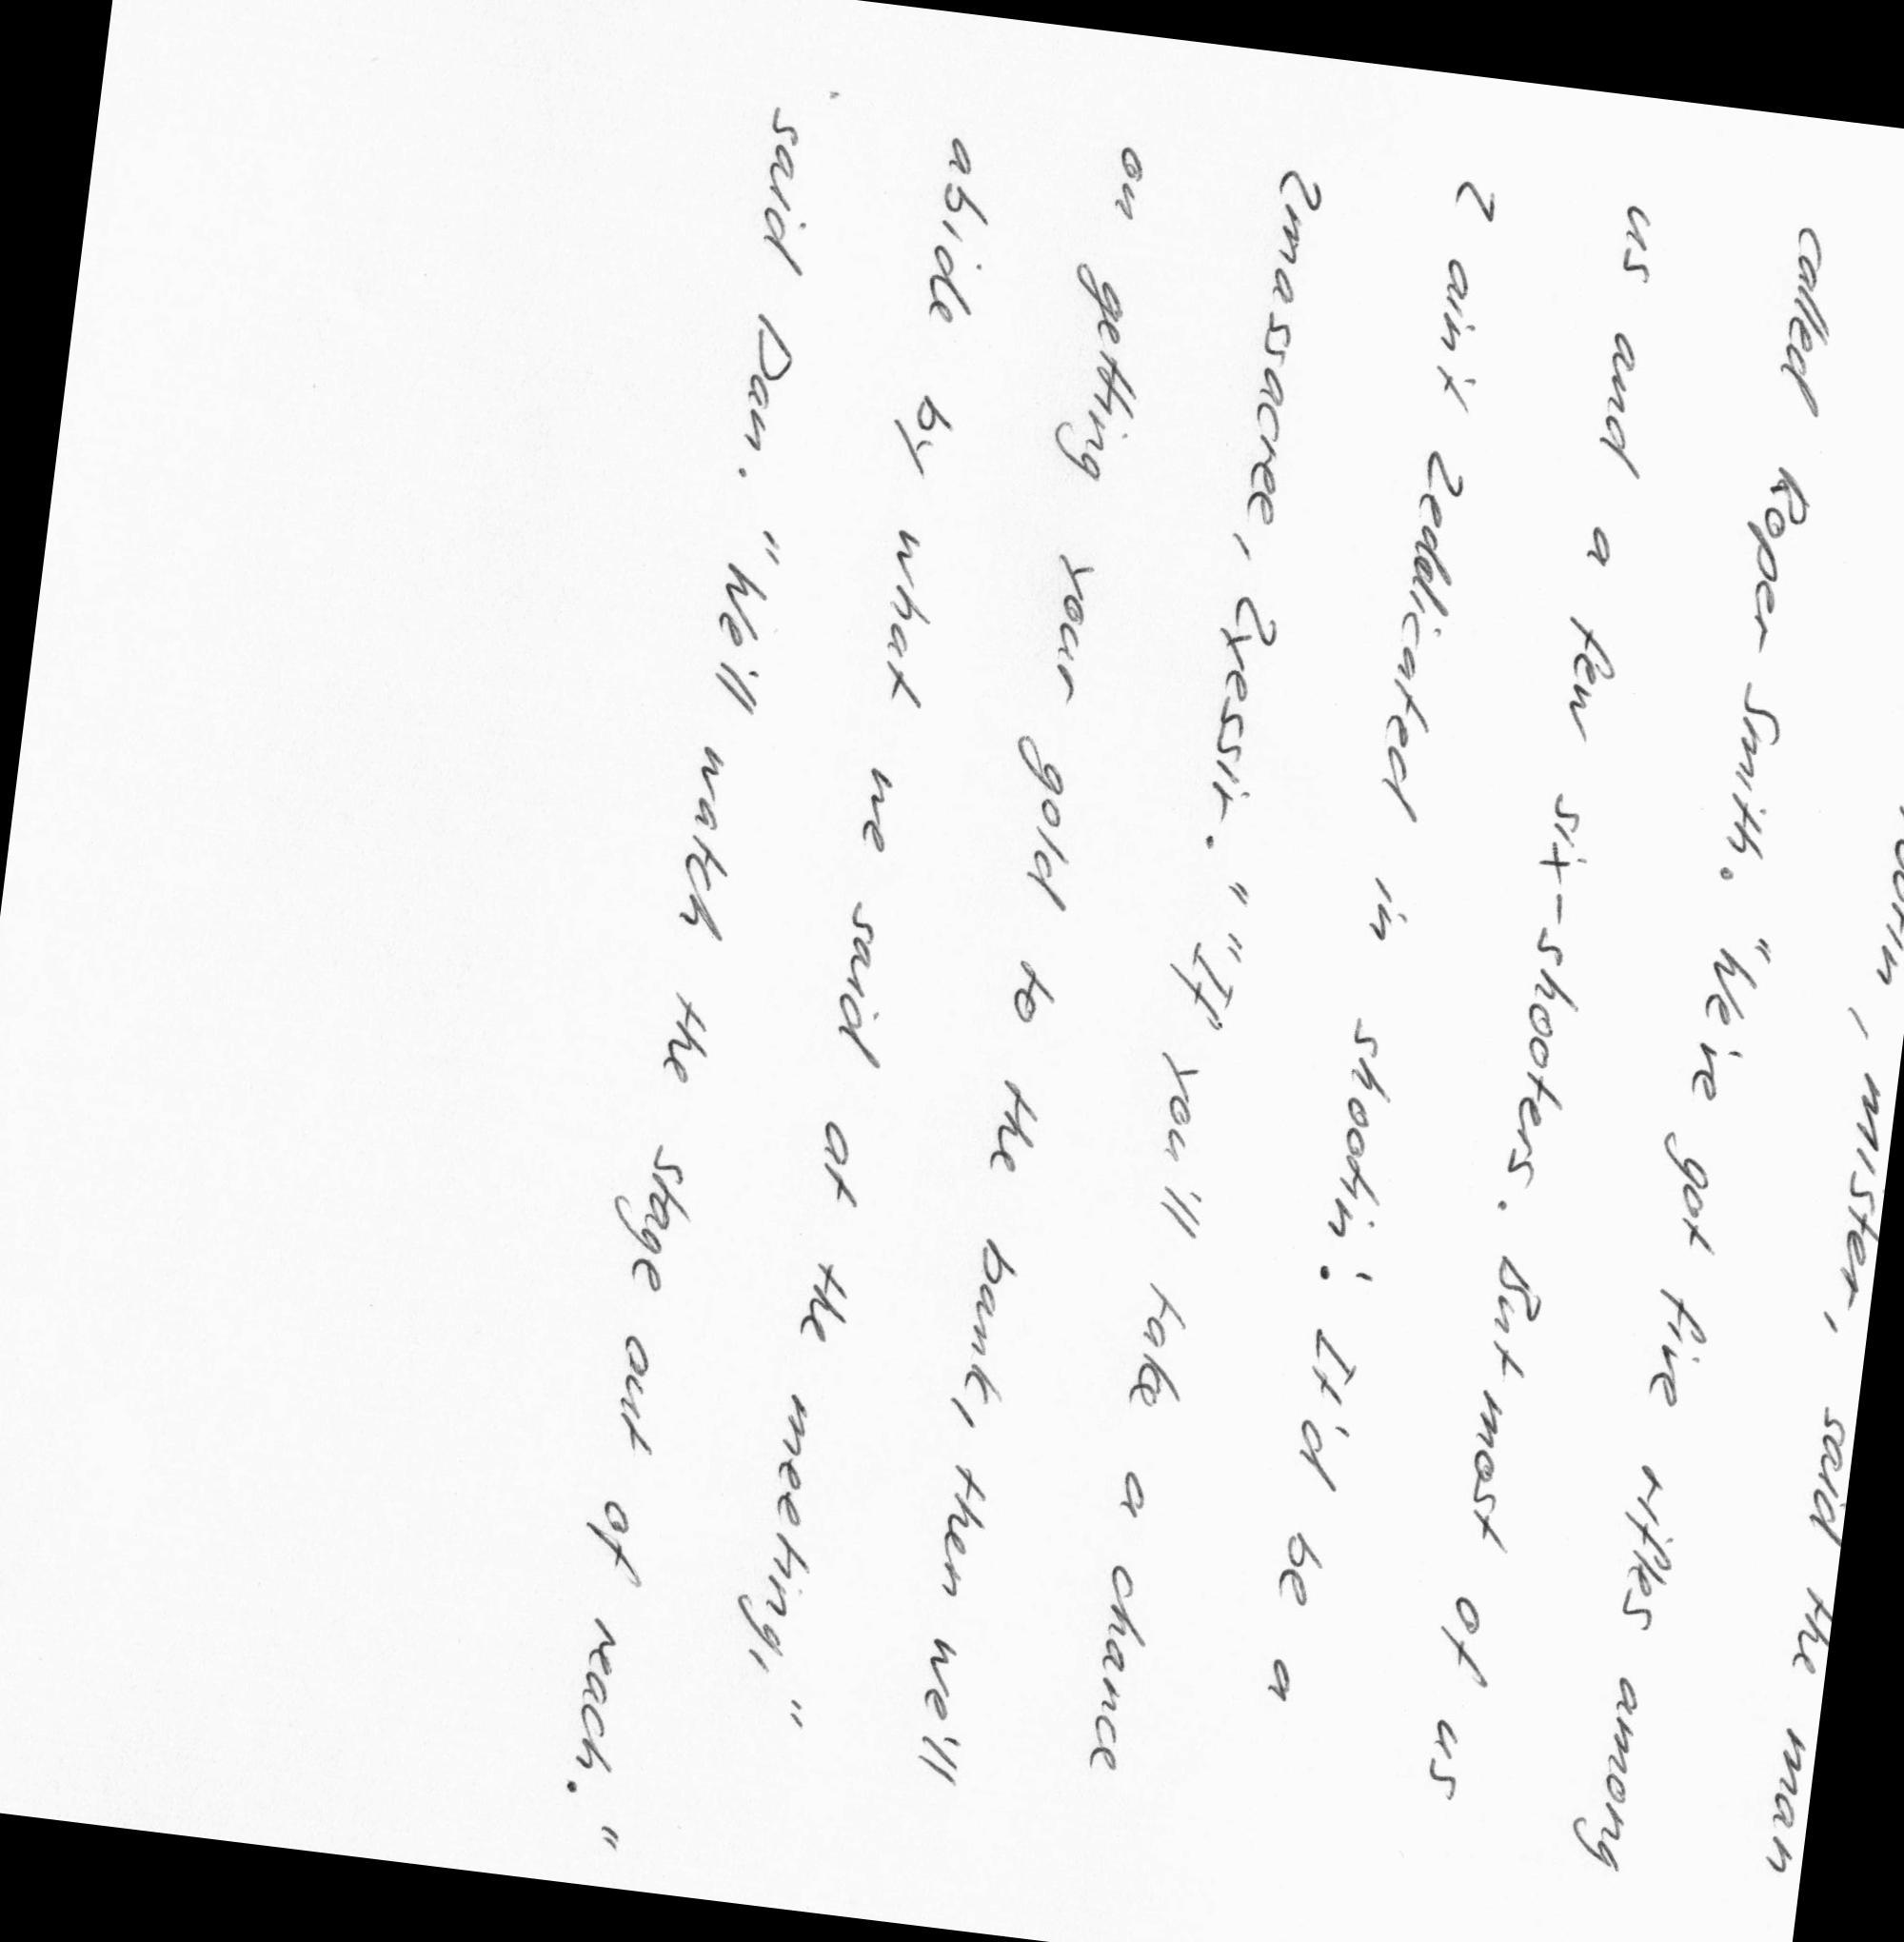 , mister, said the man
called Roper Smith. "We're got five rifles among
us and a few six--shooters. But most of us
2 ain't 2eddicated in shootin'. It'd be a
2massacree, 2yessir." "If you'll take a chance
on getting your gold to the bank, then we'll
abide by what we said at the meeting,"
said Dan. "We'll watch the stage out of reach."